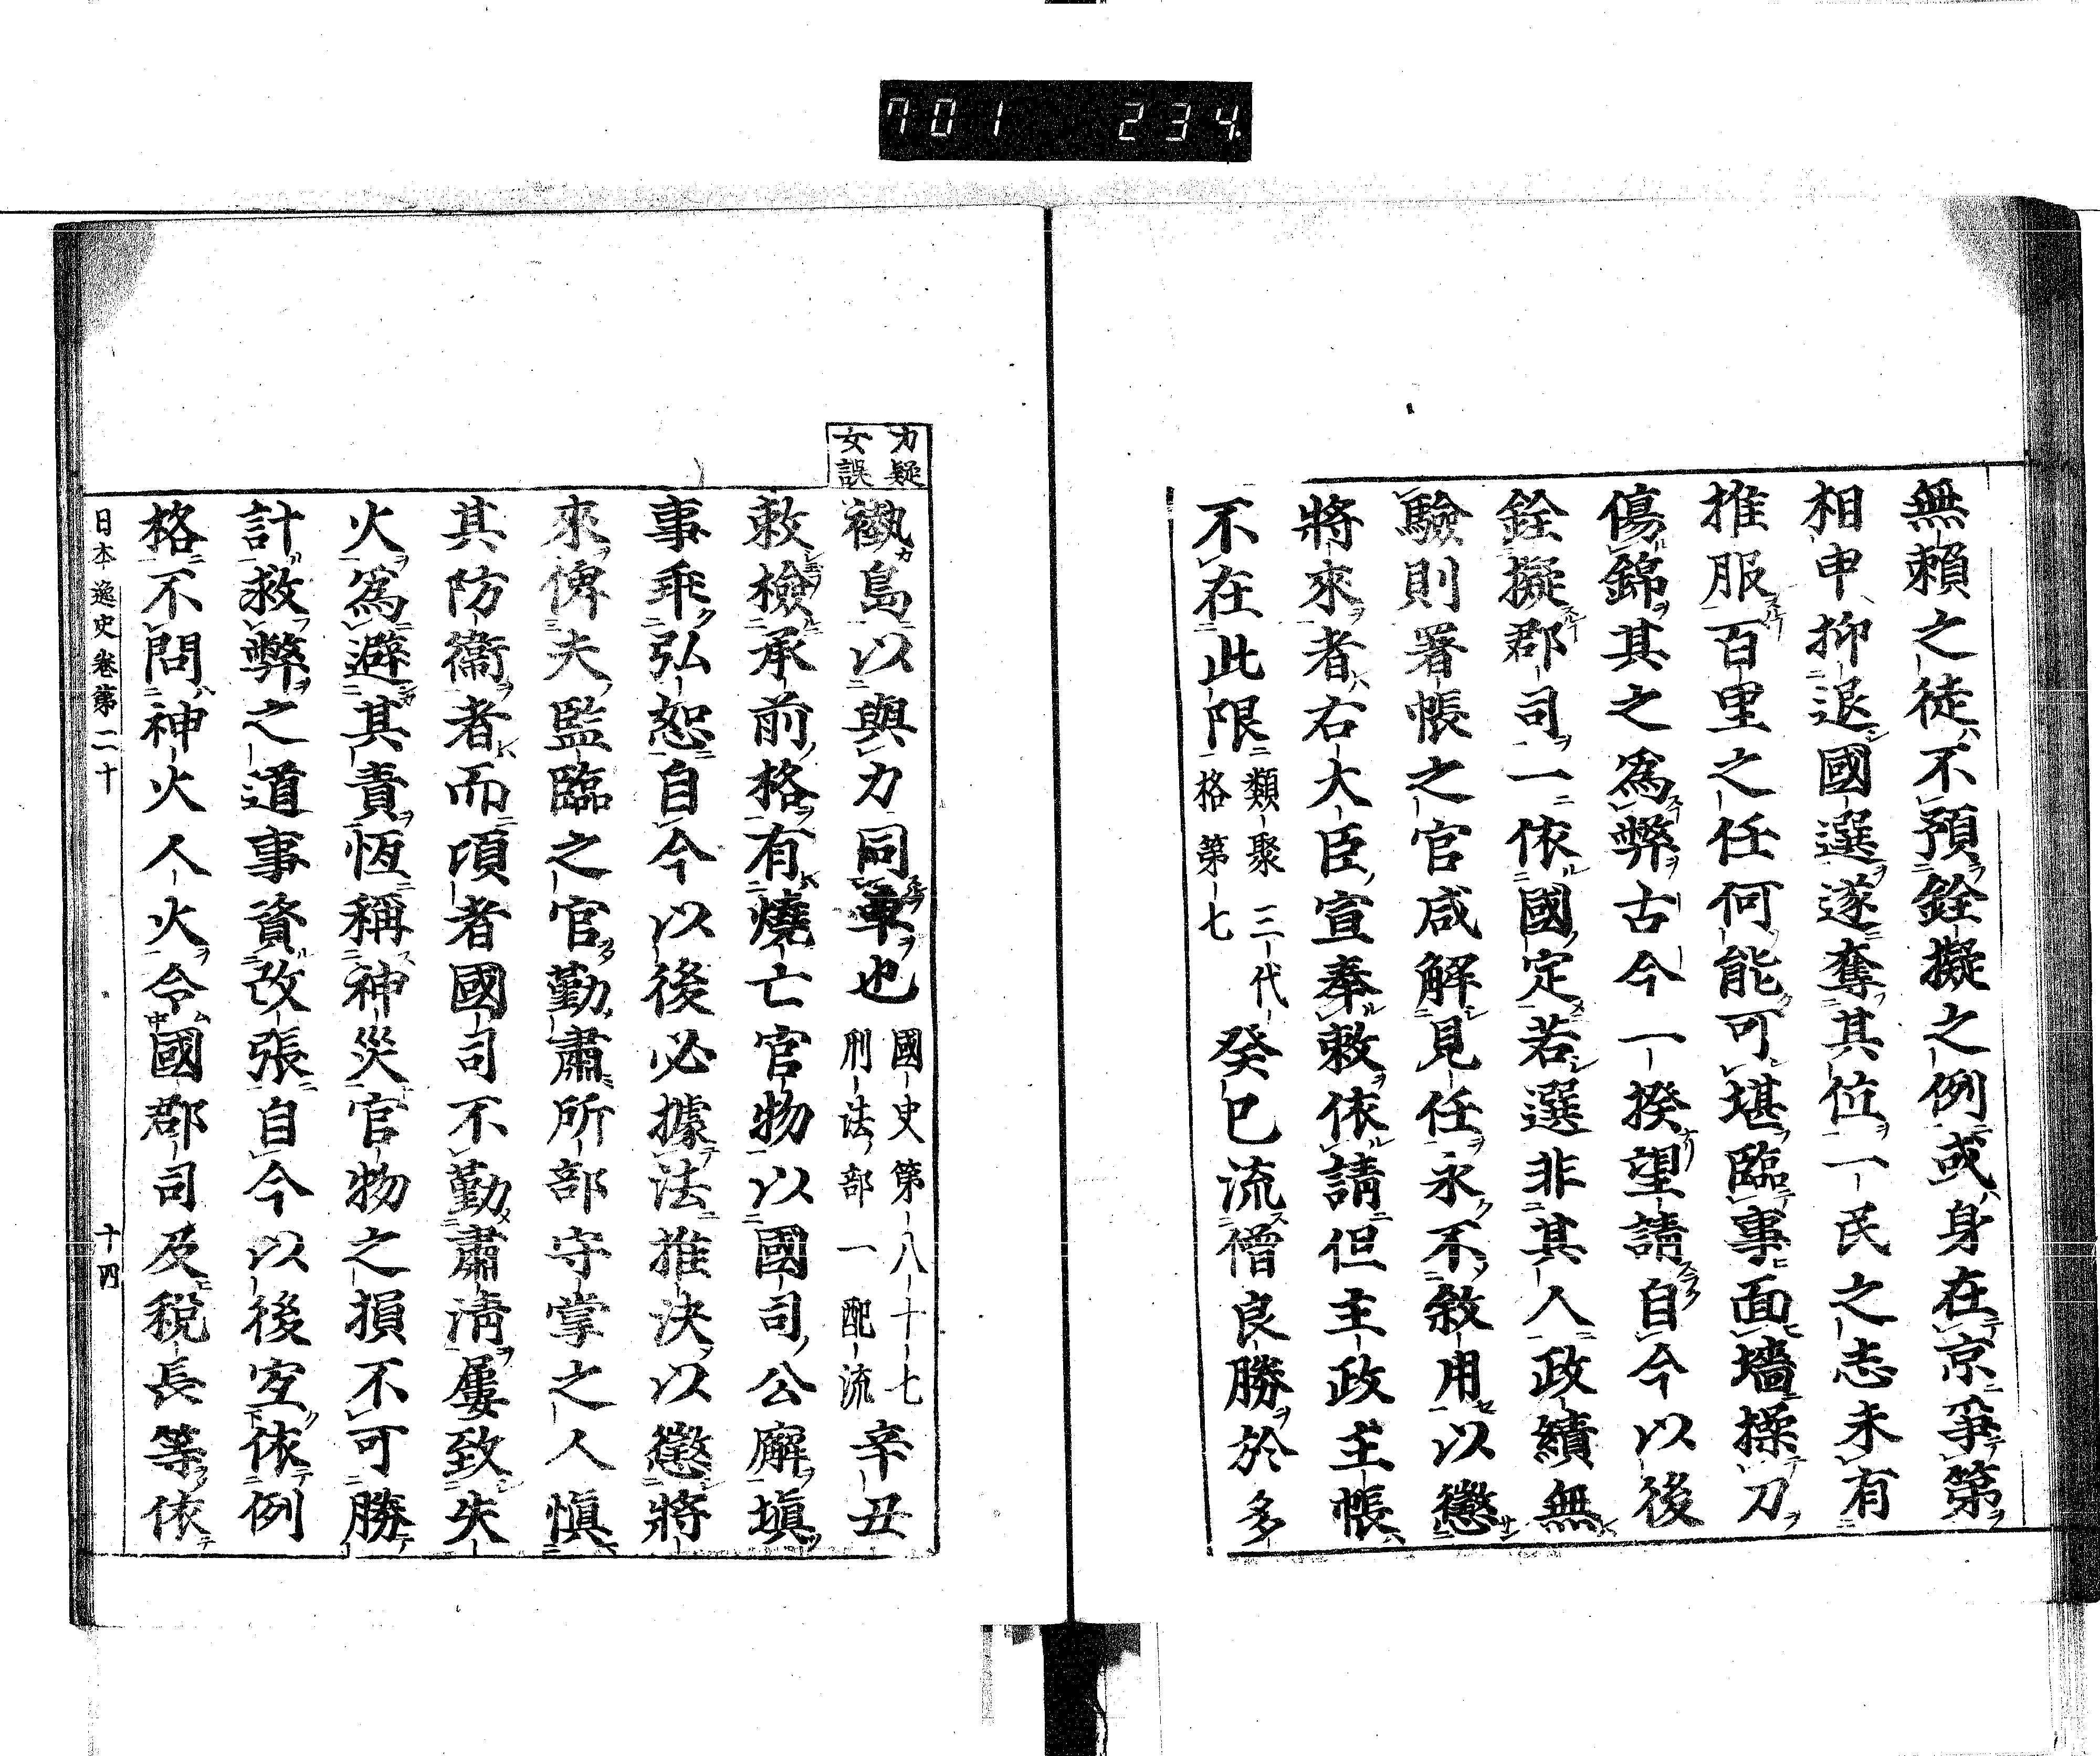 701 234
無賴之徒不預銓擬之例或身在京爭第
相申抑退國選遂奪其位一民之志未有
推服百里之任何能可堪臨事面墻操刀
傷錦其之爲弊古今一揆望請自今以後
銓擬郡司一依國定若選非其人政績無
驗則署帳之官咸解見任永不敘用以懲
將來者右大臣宣奉敕依請但主政主帳
不在此限類聚三代格第七癸巳流僧良勝於多
力疑
女誤
褹島以與力同車也國史第八十七刑法部一配流辛丑
敕檢承前格有燒亡官物以國司公廨塡
事乖弘恕自今以後必據法推決以懲將
來俾夫監臨之官勤肅所部守掌之人愼
其防衞者而頃者國司不勤肅淸屢致失
火爲避其責恆稱神災官物之損不可勝
計救弊之道事資改張自今以後宜依例
格不問神火人火令國郡司及税長等依
日本逸史卷第二十 十四